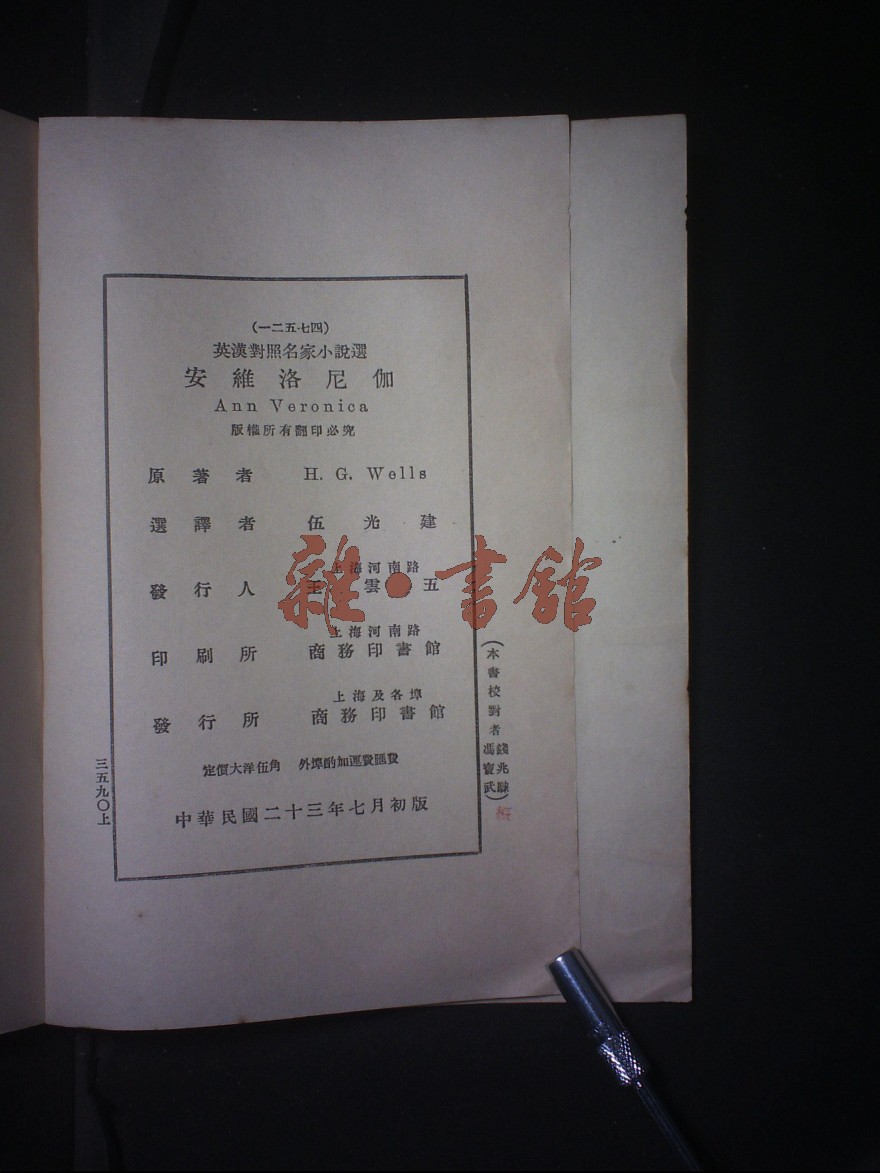 (一二五·七四)
英漢對照名家小說選
安維洛尼伽
Ann Veronica
版權所有翻印必究
原著者 H. G. Wells
選譯者 伍光建
上海河南路
發行人 王雲五
上海河南路
印刷所 商務印書館
上海及各埠
發行所 商務印書館
定價大洋伍角 外埠酌加運費匯費
中華民國二十三年七月初版
(本書校對者錢兆騄馮寶武)
三五九〇上
雜·書館